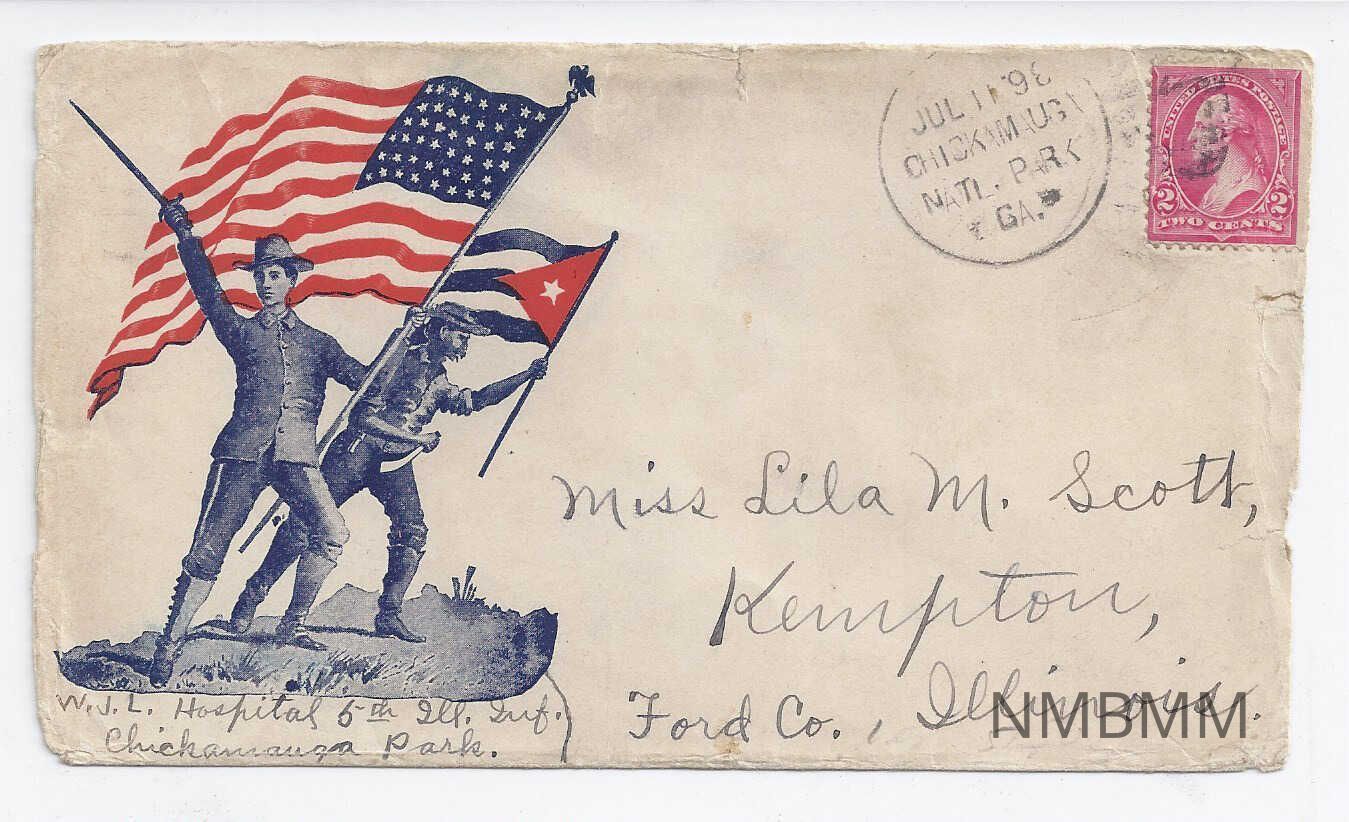 JUL 11 '98
CHICKAMAUGA
NATL. PARK
GA.
UNITED STATES POSTAGE
2 2
TWO CENTS
Miss Lila M. Scott,
Kempton,
Ford Co., Illinois.
NMBMM
W.J.L. Hospital 5th Ill. Inf.
Chickamauga Park.